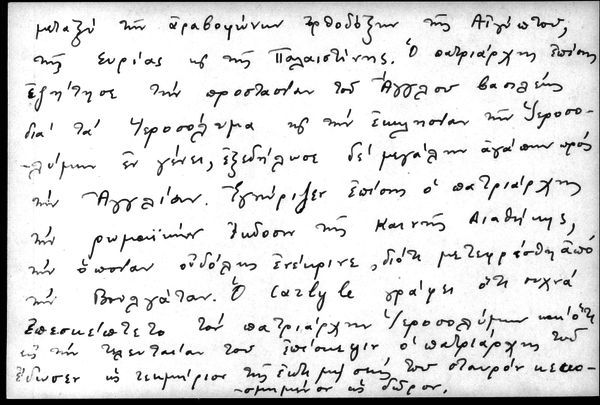 μεταξύ τῶν ἀραβοφώνων ὀρθοδόξων τῆς Αἰγύπτου,
τῆς Συρίας καὶ τῆς Παλαιστίνης. Ὁ πατριάρχης ἐπίσης
ἐζήτησε τὴν προστασίαν τοῦ Ἄγγλου βασιλέως
διὰ τὰ Ἱεροσόλυμα καὶ τὴν ἐκκλησίαν τῶν Ἱεροσο-
-λύμων ἐν γένει, ἐξεδήλωσε δὲ μεγάλην ἀγάπην πρὸς
τὴν Ἀγγλίαν. Ἐγνώριζεν ἐπίσης ὁ πατριάρχης
τὴν ρωμαιϊκὴν ἔκδοσιν τῆς Καινῆς Διαθήκης,
τὴν ὁποίαν οὐδόλως ἐνέκρινε, διότι μετεφράσθη ἀπὸ
τὴν Βουλγάταν. Ὁ Carlyle γράφει ὅτι συχνὰ
ἐπεσκέπτετο τὸν πατριάρχην Ἱεροσολύμων καὶ ὅτι
εἰς τὴν τελευταίαν του ἐπίσκεψιν ὁ πατριάρχης τοῦ
ἔδωσεν ὡς τεκμήριον τῆς ἐκτιμήσεώς του σταυρὸν κεκο-
-σμημένον ὡς δῶρον.